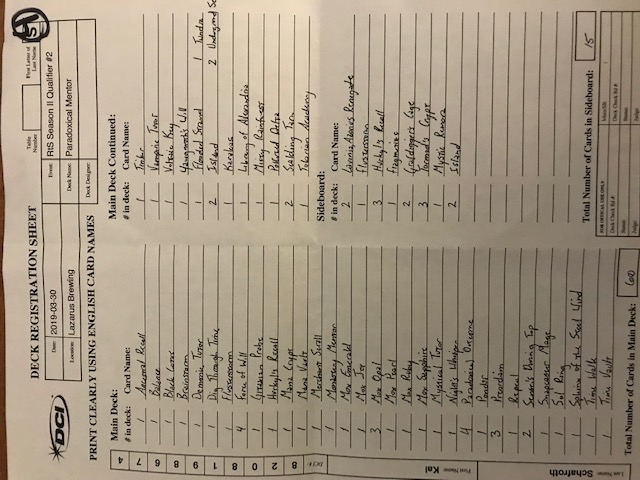 DECK REGISTRATION SHEET
Table Number
First Letter of Last Name
S
DCI
Date: 2019-03-30
Event: RtS Season II Qualifier #2
Location: Lazarus Brewing
Deck Name: Paradoxical Mentor
Deck Designer:
PRINT CLEARLY USING ENGLISH CARD NAMES
DCI #: 8 2 0 8 1 9 8 6 7 4
First Name: Kai
Last Name: Schafroth
Main Deck:
# in deck: Card Name:
1 Ancestral Recall
1 Balance
1 Black Lotus
1 Brainstorm
1 Demonic Tutor
1 Dig Through Time
1 Flusterstorm
4 Force of Will
1 Gitaxian Probe
1 Hurkyl's Recall
1 Mana Crypt
1 Mana Vault
1 Merchant Scroll
1 Monastery Mentor
1 Mox Emerald
1 Mox Jet
3 Mox Opal
1 Mox Pearl
1 Mox Ruby
1 Mox Sapphire
1 Mystical Tutor
1 Night's Whisper
4 Paradoxical Outcome
1 Ponder
3 Preordain
1 Repeal
2 Sensei's Divining Top
1 Snapcaster Mage
1 Sol Ring
1 Sphinx of the Steel Wind
1 Time Walk
1 Time Vault
Total Number of Cards in Main Deck: 60
Main Deck Continued:
# in deck: Card Name:
1 Tinker
1 Vampiric Tutor
1 Voltaic Key
1 Yawgmoth's Will
1 Flooded Strand 1 Tundra
2 Island 2 Underground Se
1 Karakas
1 Library of Alexandria
1 Misty Rainforest
1 Polluted Delta
2 Scalding Tarn
1 Tolarian Academy
Sideboard:
# in deck: Card Name:
2 Lavinia, Azorius Renegade
1 Flusterstorm
3 Hurkyl's Recall
1 Fragmentize
2 Grafdigger's Cage
3 Tormod's Crypt
1 Mystic Remora
2 Island
Total Number of Cards in Sideboard: 15
FOR OFFICIAL USE ONLY
Main/SB:
Deck Check Rd #
Deck Check Rd #
Status:
Status:
Judge:
Judge: